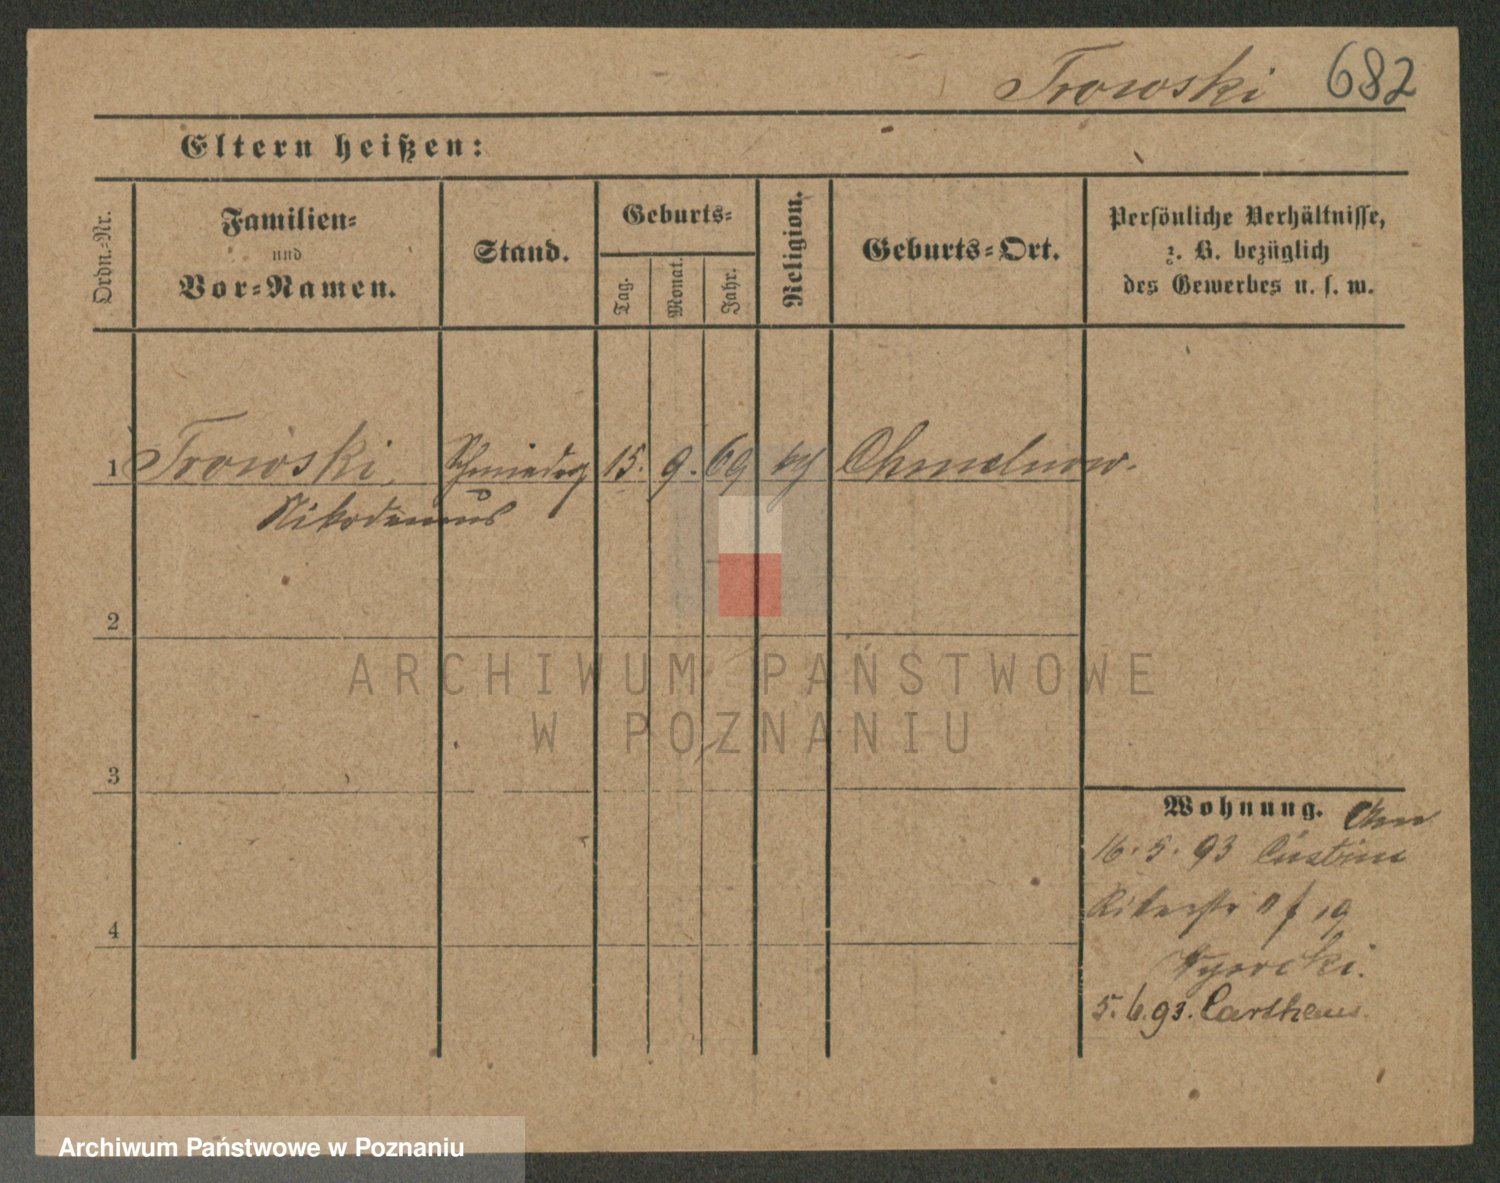 Trowski 682
Eltern heißen:
Ordn.-Nr.
Familien-
und
Vor-Namen.
Stand.
Geburts-
Tag.
Monat.
Jahr.
Religion.
Geburts-Ort.
Persönliche Verhältnisse,
z. B. bezüglich
des Gewerbes u. s. w.
1 Trowski, 15. 9. 69 Chmelnow.
Nikodemus
2
3
4
Wohnung.
16. 5. 93
19
5. 6. 93. Carthaus
ARCHIWUM PAŃSTWOWE
W POZNANIU
Archiwum Państwowe w Poznaniu